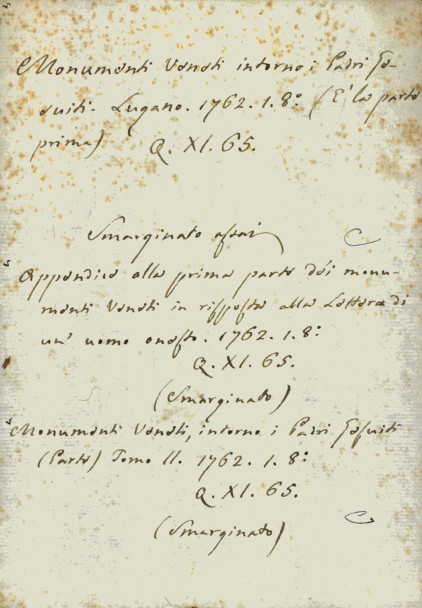 Monumenti Veneti intorno i Padri Ge-
suiti. Lugano. 1762. 1. 8.º (E' la parte
prima) Q. XI. 65.
Smarginato assai
Appendice alla prima parte dei monu-
menti Veneti in risposta alla Lettera di
un' uomo onesto. 1762. 1. 8.º
Q. XI. 65.
(Smarginato)
Monumenti Veneti, intorno i Padri Gesuiti
(Parte) Tomo II. 1762. 1. 8.º
Q. XI. 65.
(Smarginato)